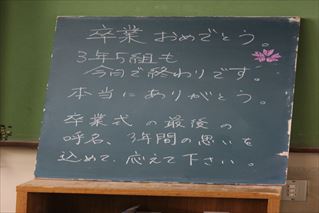 卒業おめでとう。
3年5組も
今日で終わりです。
本当にありがとう。
卒業式の最後の
呼名、3年間の思いを
込めて、応えて下さい。